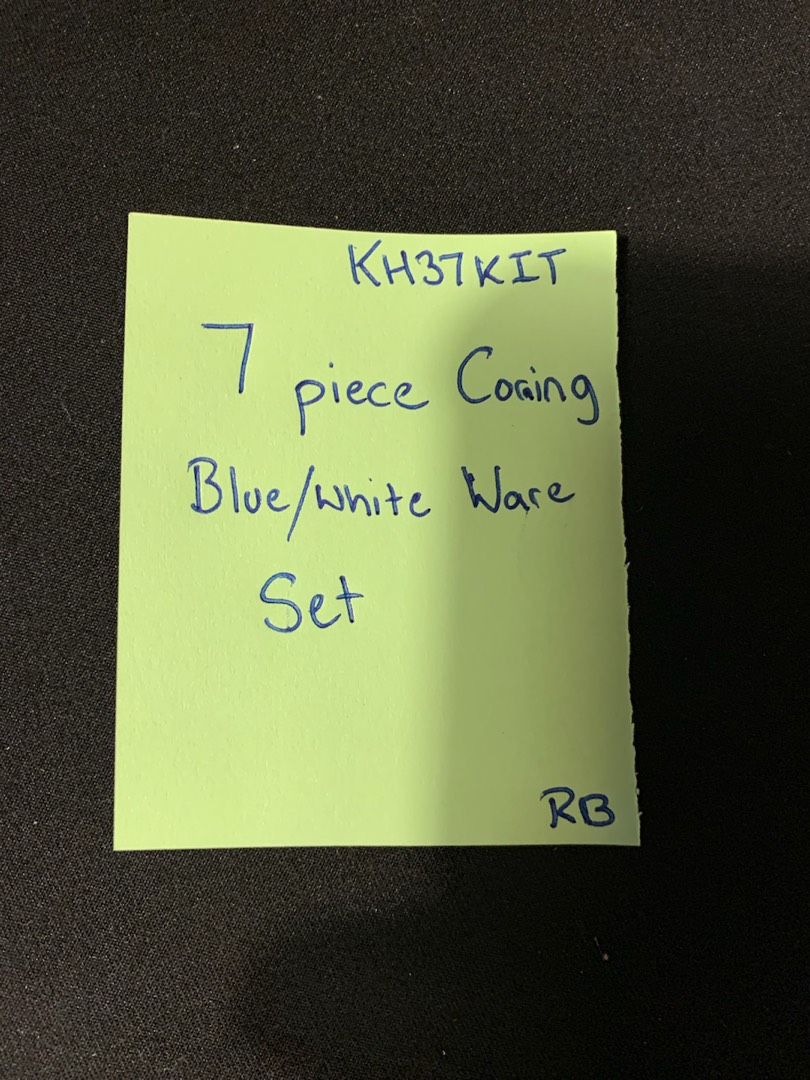 KH37KIT
7 piece Corning
Blue/white Ware
Set
RB